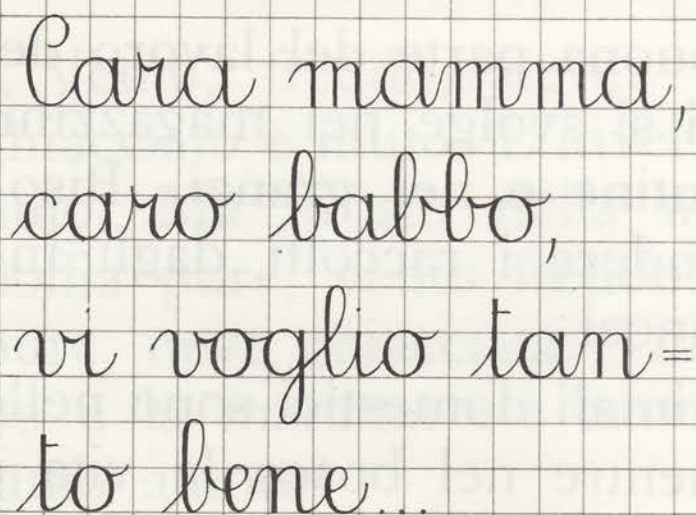 Cara mamma,
caro babbo,
vi voglio tan=
to bene...